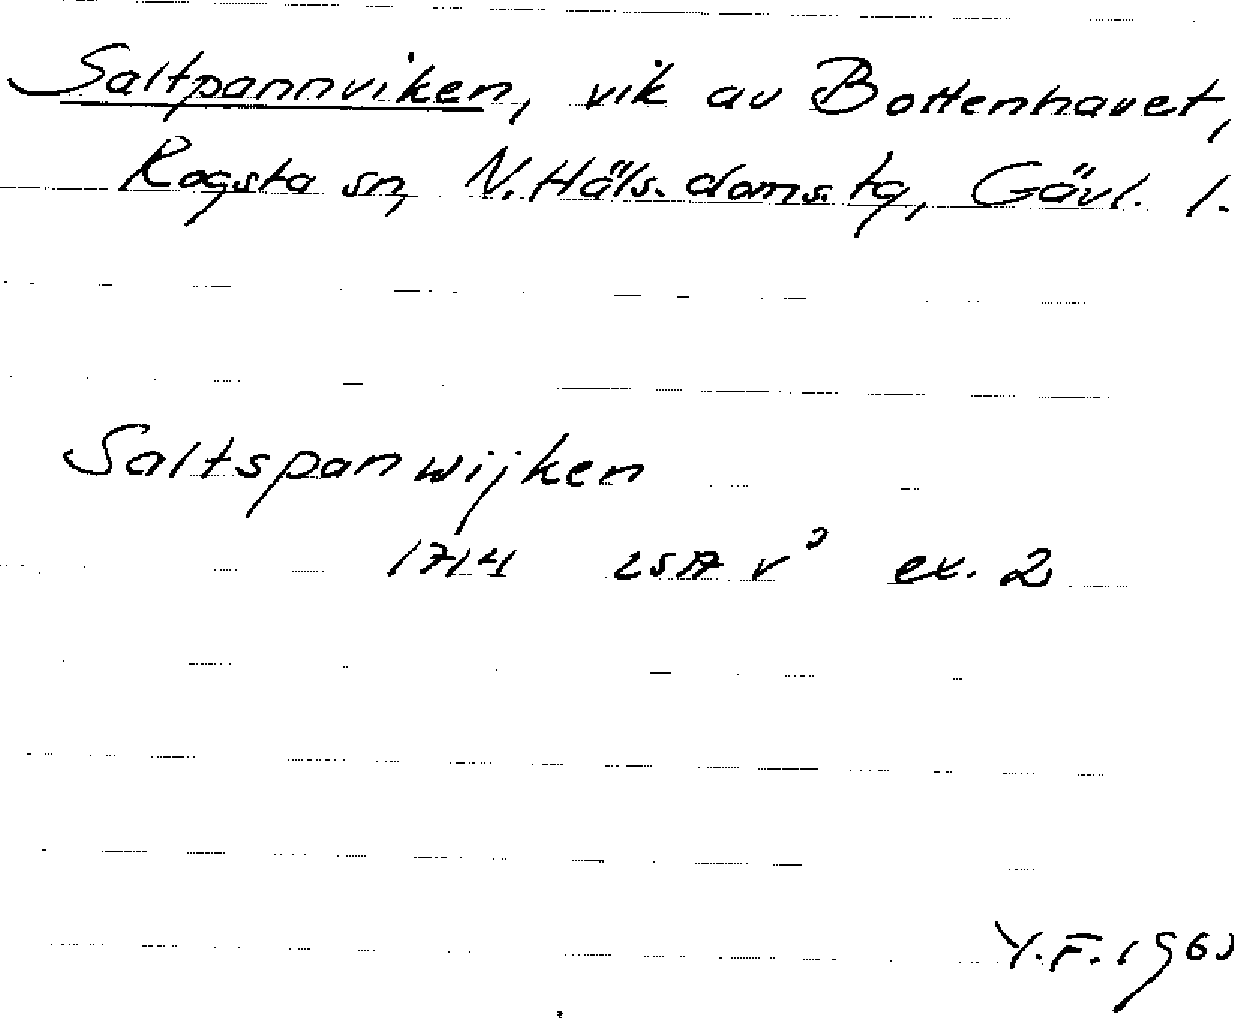 Saltpannviken, vik av Bottenhavet,
Rogsta sn, N. Häls. doms. tg, Gävl. l.
Saltspanwijken
1714 LSA v³ ex. 2
Y.F. 196